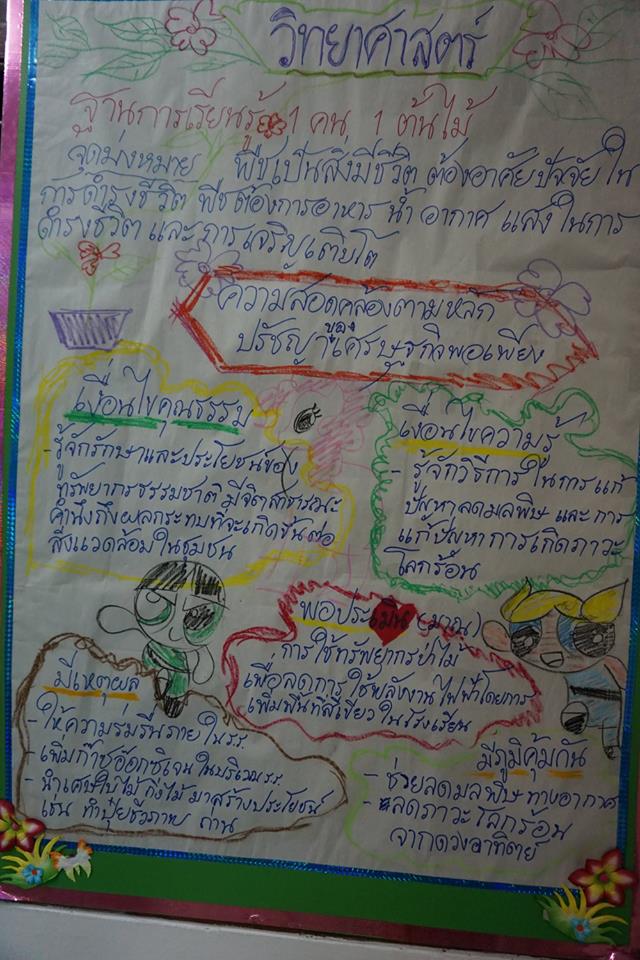 วิทยาศาสตร์
ฐานการเรียนรู้ 1 คน, 1 ต้นไม้
จุดมุ่งหมาย พืชเป็นสิ่งมีชีวิต ต้องอาศัยปัจจัยใน
การดำรงชีวิต พืชต้องการอาหาร น้ำ อากาศ แสงในการ
ดำรงชีวิต และการเจริญเติบโต
ความสอดคล้องตามหลัก
ปรัชญาของเศรษฐกิจพอเพียง
เงื่อนไขคุณธรรม
- รู้จักรักษาและประโยชน์ของ
ทรัพยากรธรรมชาติ มีจิตสาธารณะ
คำนึงถึงผลกระทบที่จะเกิดขึ้นต่อ
สิ่งแวดล้อมในชุมชน
เงื่อนไขความรู้
- รู้จักวิธีการในการแก้
ปัญหาลดมลพิษ และการ
แก้ปัญหาการเกิดภาวะ
โลกร้อน
พอประเมิน (มาณ)
การใช้ทรัพยากรป่าไม้
เพื่อลดการใช้พลังงานไฟฟ้าโดยการ
เพิ่มพื้นที่สีเขียวในโรงเรียน
มีเหตุผล
- ให้ความร่มรื่นภายใน รร.
- เพิ่มก๊าซอ๊อกซิเจนในบริเวณ รร.
- นำเศษใบไม้ กิ่งไม้ มาสร้างประโยชน์
เช่น ทำปุ๋ยชีวภาพ ถ่าน
มีภูมิคุ้มกัน
- ช่วยลดมลพิษทางอากาศ
- ลดภาวะโลกร้อน
จากดวงอาทิตย์